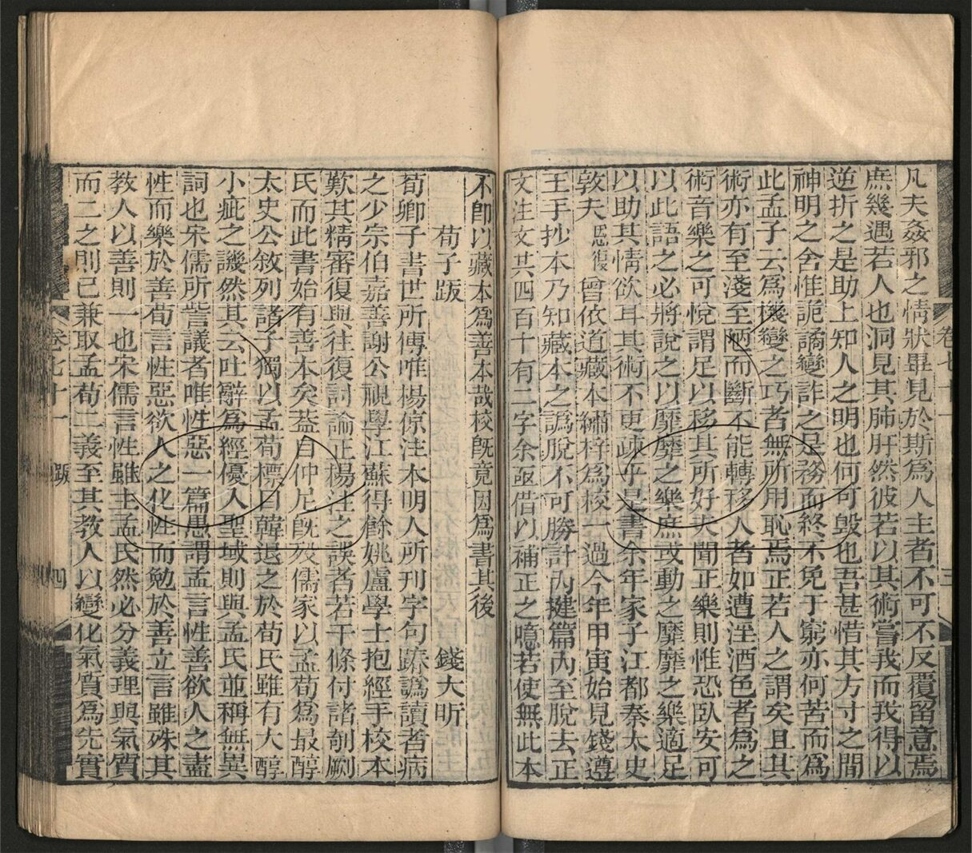 凡夫姦邪之情狀畢見於斯爲人主者不可不反覆留意焉
庶幾遇若人也洞見其肺肝然彼若以其術嘗我而我得以
逆折之是助上知人之明也何可毀也吾甚惜其方寸之間
神明之舍惟詭譎變詐之是務而終不免于窮亦何苦而爲
此孟子云爲機變之巧者無所用恥焉正若人之謂矣且其
術亦有至淺至陋而斷不能轉移人者如遭淫酒色者爲之
術音樂之可悅謂足以移其所好夫聞正樂則惟恐臥安可
以此語之必將說之以靡靡之樂庶或動之靡靡之樂適足
以助其情欲耳其術不更疎乎是書余年家子江都秦太史
敦夫恩復曾依道藏本繡梓爲校一過今年甲寅始見錢遵
王手抄本乃知藏本之譌脫不可勝計內揵篇內至脫去正
文注文共四百十有二字余亟借以補正之噫若使無此本
卷七十一
三
不卽以藏本爲善本哉校旣竟因爲書其後
荀子跋
錢大昕
荀卿子書世所傳唯楊倞注本明人所刊字句踳譌讀者病
之少宗伯嘉善謝公視學江蘇得餘姚盧學士抱經手校本
歎其精審復與往復討論正楊注之誤者若干條付諸剞劂
氏而此書始有善本矣蓋自仲尼旣歿儒家以孟荀爲最醇
太史公敘列諸子獨以孟荀標目韓退之於荀氏雖有大醇
小疵之譏然其云吐辭爲經優入聖域則與孟氏並稱無異
詞也宋儒所訾議者唯性惡一篇愚謂孟言性善欲人之盡
性而樂於善荀言性惡欲人之化性而勉於善立言雖殊其
教人以善則一也宋儒言性雖主孟氏然必分義理與氣質
而二之則已兼取孟荀二義至其教人以變化氣質爲先實
卷七十一
跋
四